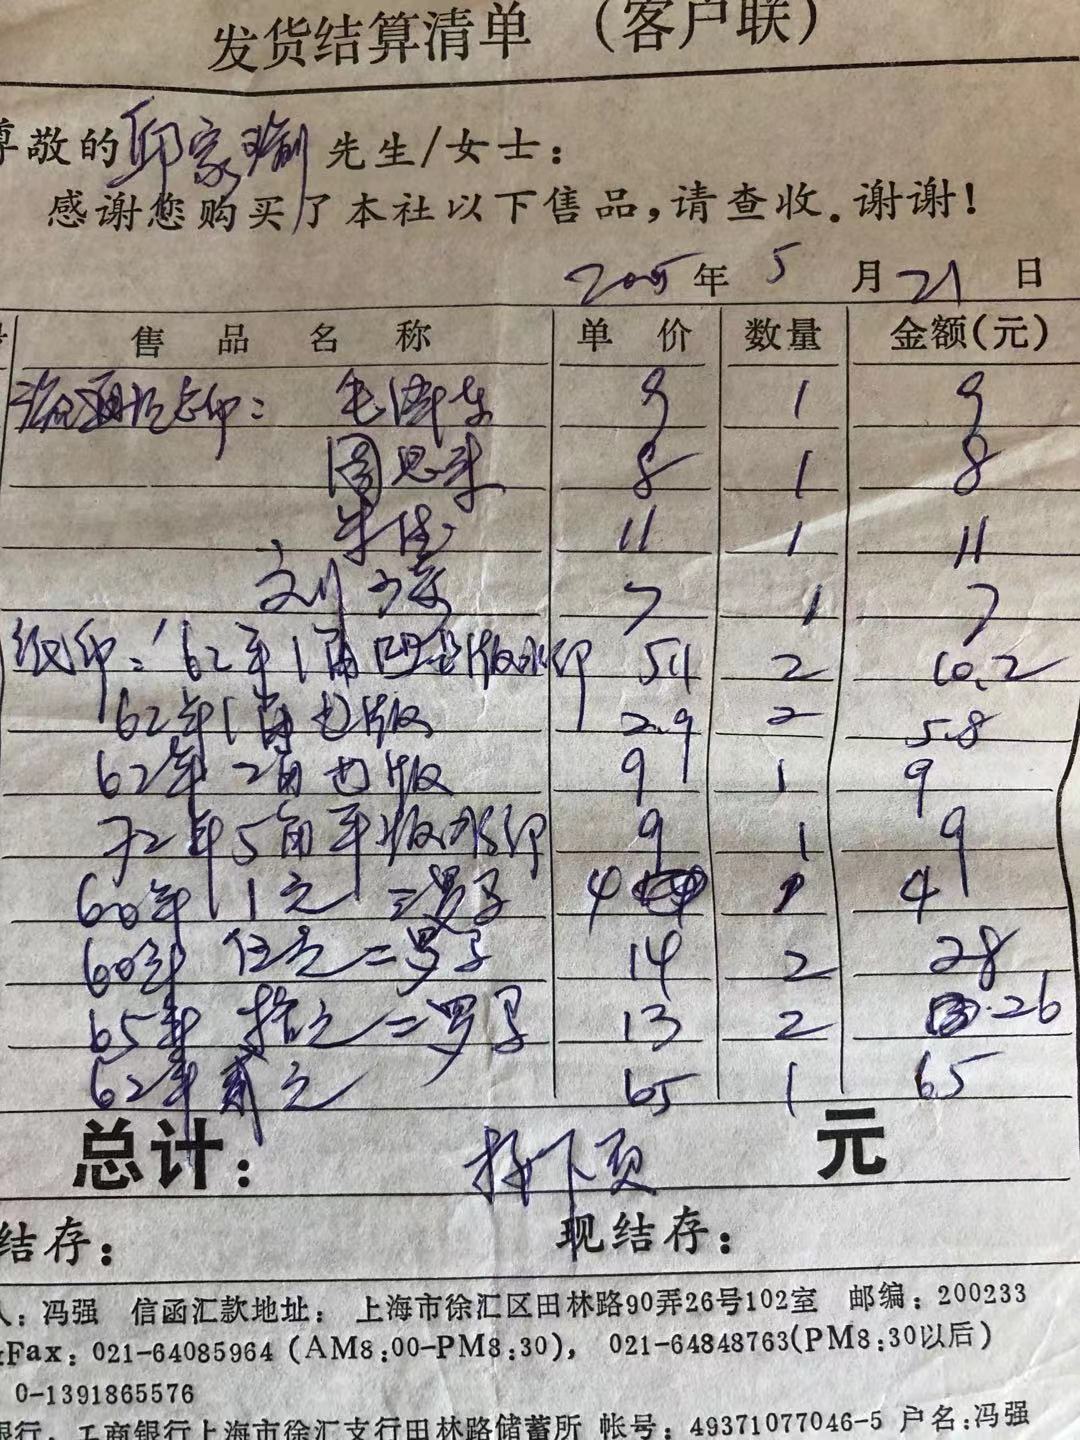 发货结算清单 （客户联）
尊敬的邱家瑜先生/女士：
感谢您购买了本社以下售品，请查收．谢谢！
2005年 5 月 21 日
售品名称 单价 数量 金额(元)
流通纪念币： 毛泽东 9 1 9
周恩来 8 1 8
朱德 11 1 11
刘少奇 7 1 7
纸币： 62年1角凹凸版水印 5.1 2 10.2
62年1角凸版 2.9 2 5.8
62年2角凸版 9 1 9
72年5角平版水印 9 1 9
60年 1元 二罗马 4 1 4
60年 伍元 二罗马 14 2 28
65年 拾元 二罗马 13 2 26
62年 贰元 65 1 65
总计： 接下页 元
结存： 现结存：
人：冯强 信函汇款地址： 上海市徐汇区田林路90弄26号102室 邮编：200233
&Fax：021-64085964 (AM8:00-PM8:30)， 021-64848763(PM8:30以后)
0-1391865576
银行：工商银行上海市徐汇支行田林路储蓄所 帐号：49371077046-5 户名:冯强